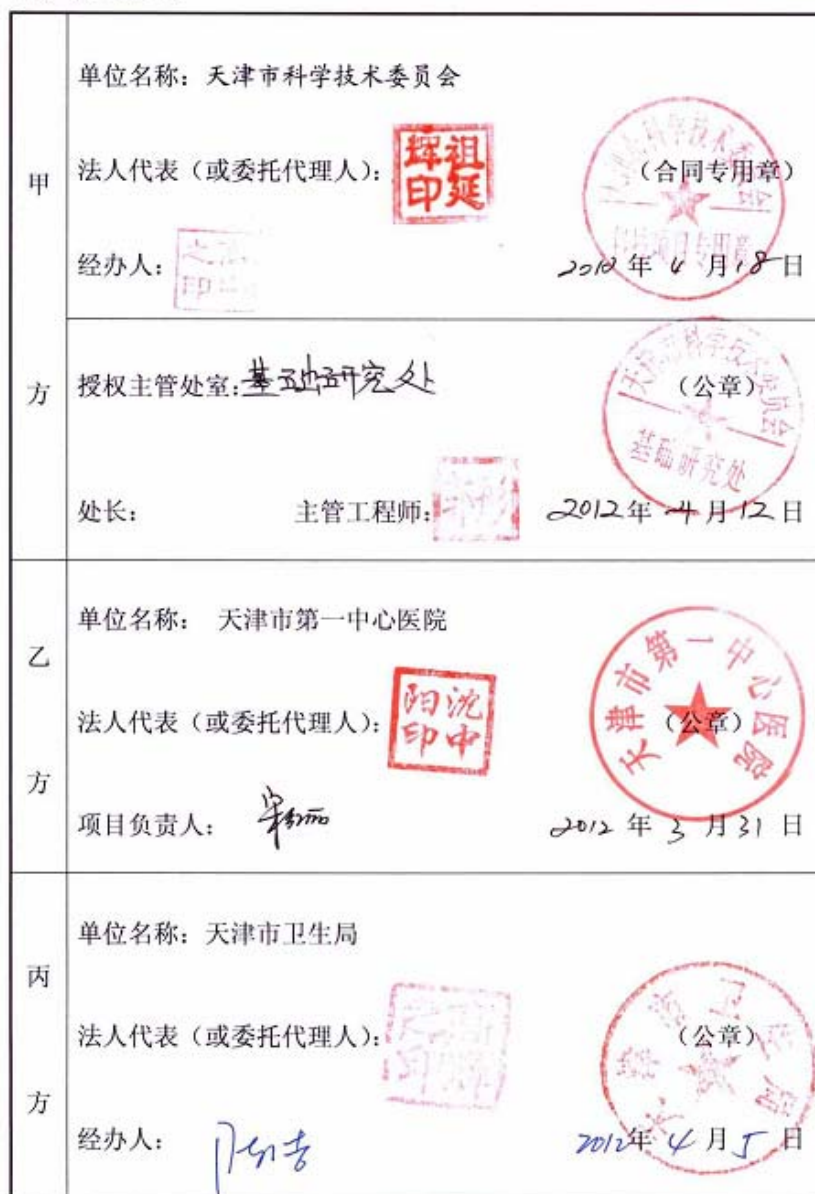 甲方
单位名称：天津市科学技术委员会
法人代表（或委托代理人）：
祖延辉印
（合同专用章）
天津市科学技术委员会
科技项目专用章
经办人：
2012年4月18日
授权主管处室：基础研究处
（公章）
天津市科学技术委员会
基础研究处
处长： 主管工程师：
2012年4月12日
乙方
单位名称： 天津市第一中心医院
法人代表（或委托代理人）：
沈中阳印
（公章）
天津市第一中心医院
项目负责人：
2012年3月31日
丙方
单位名称：天津市卫生局
法人代表（或委托代理人）：
（公章）
天津市卫生局
经办人：
2012年4月5日